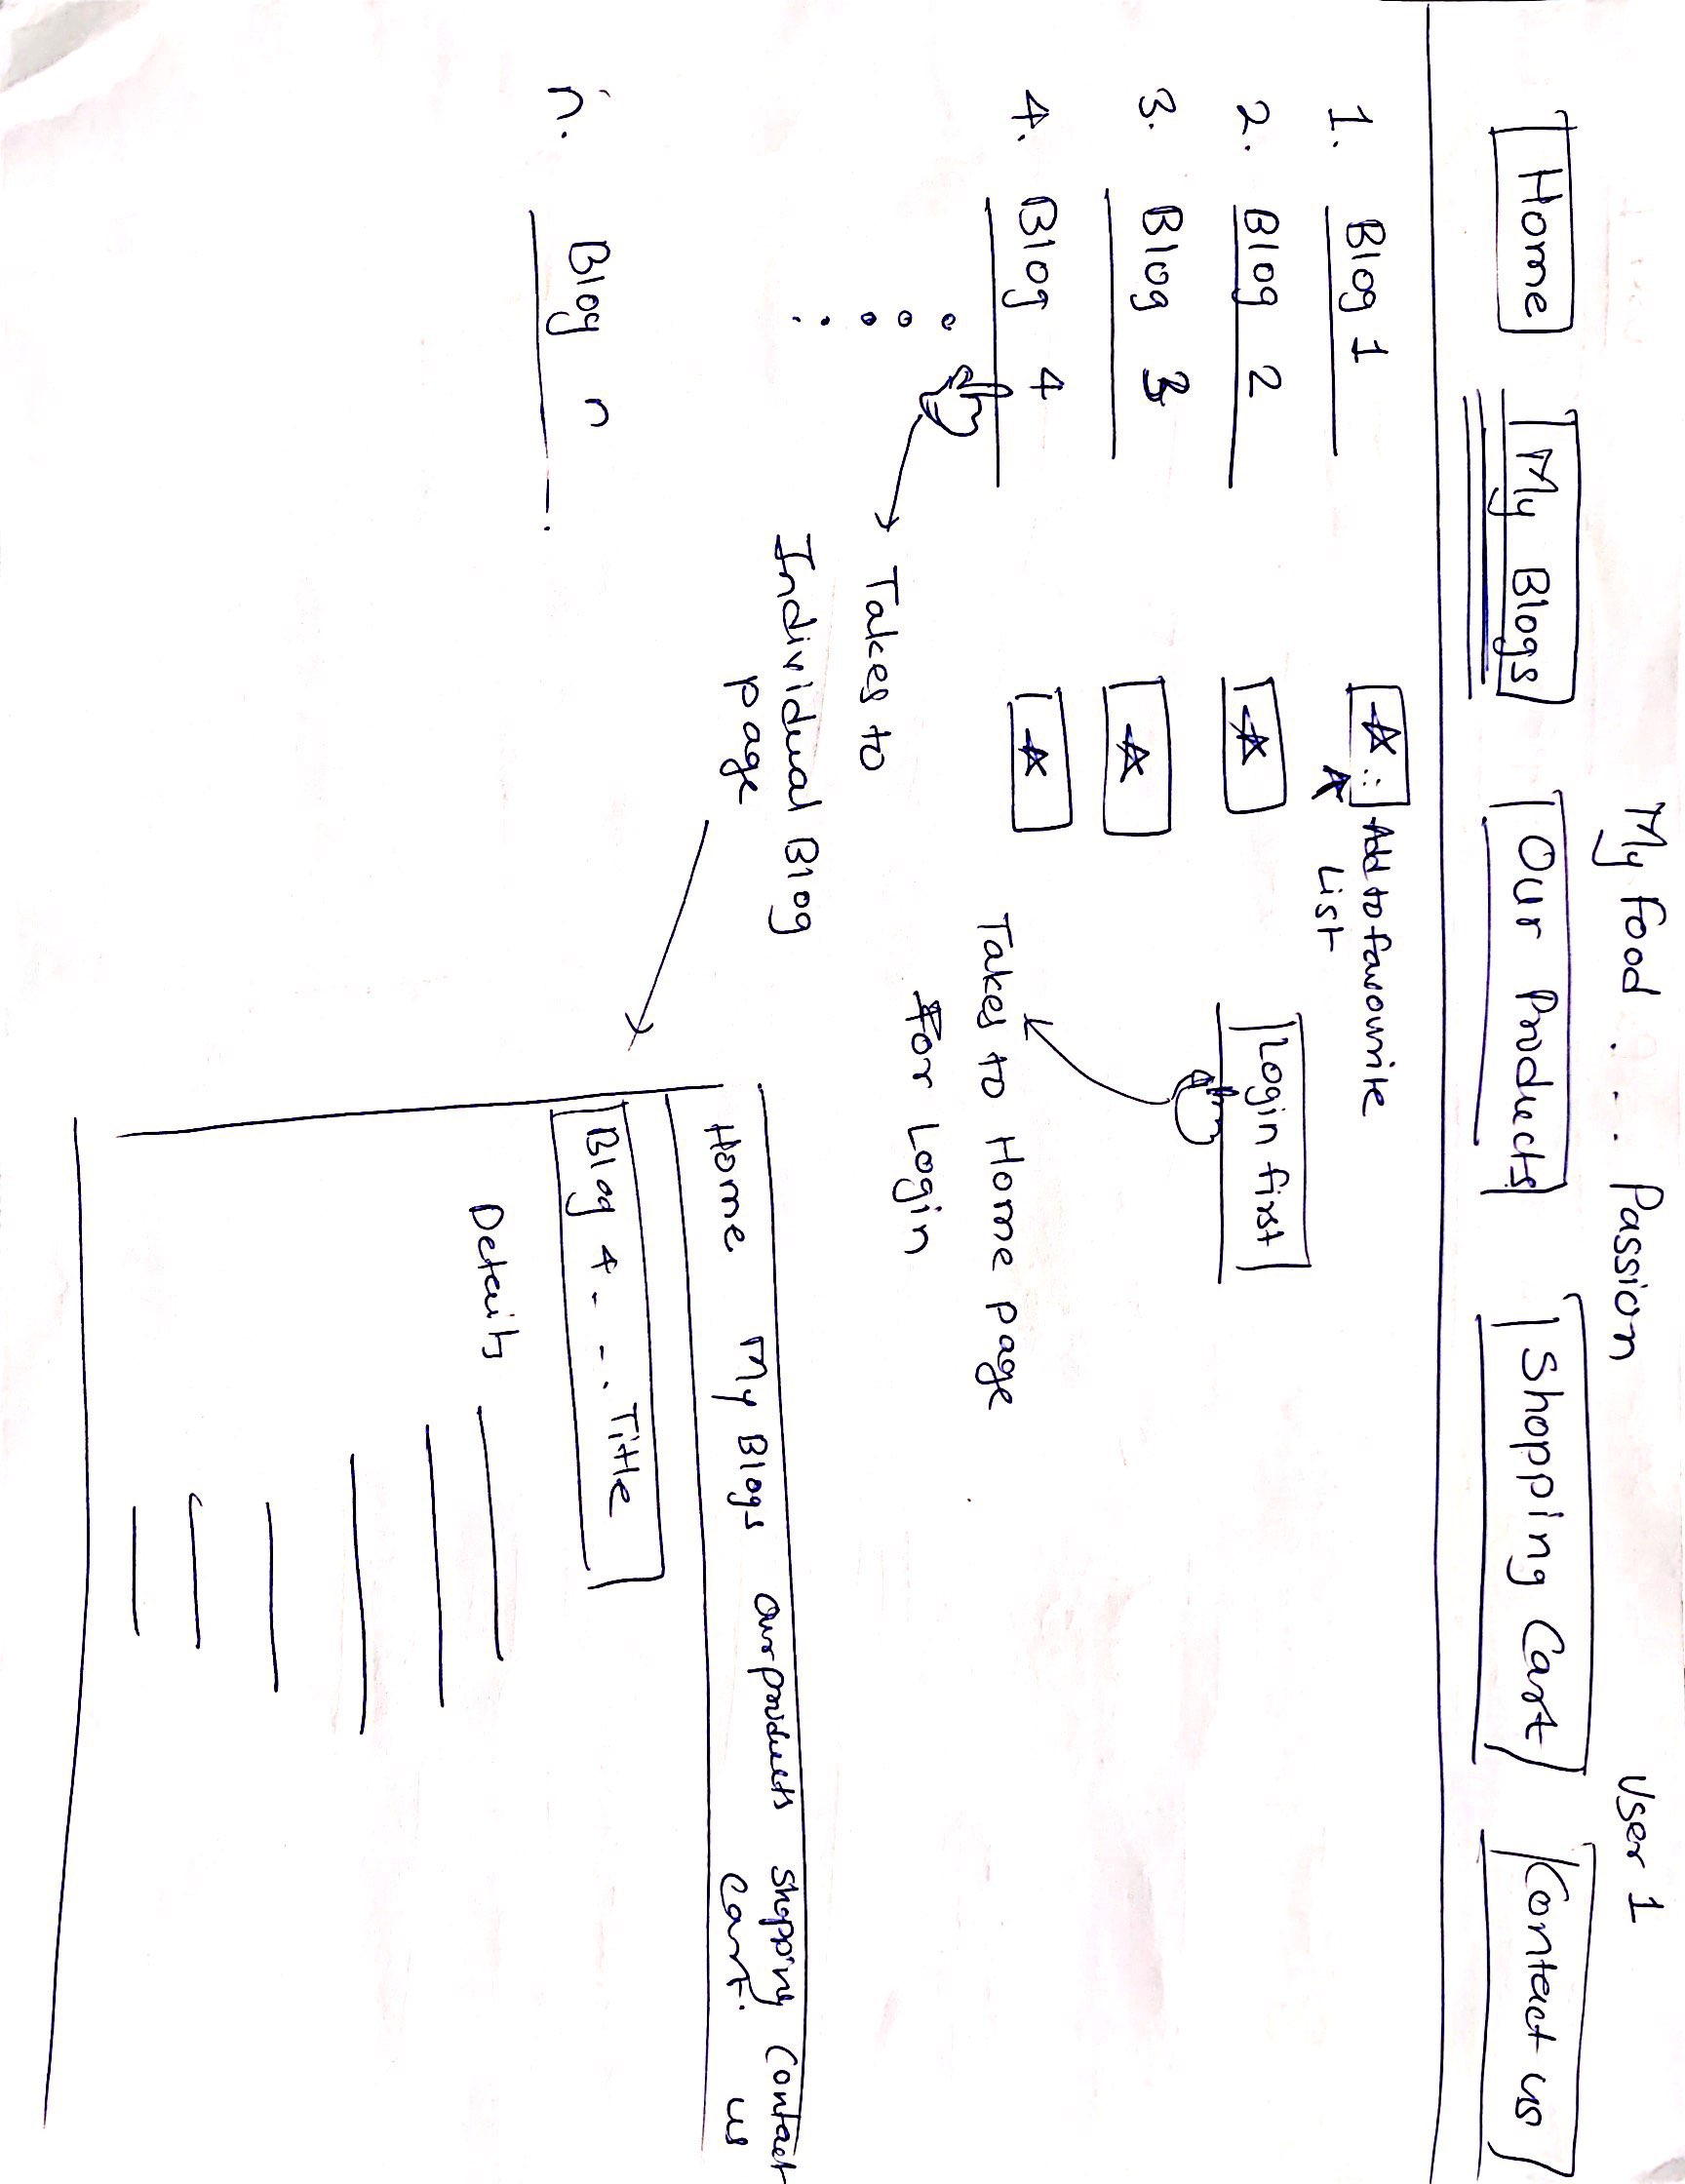 My Food . . . . Passion User 1
Home My Blogs Our Products Shopping Cart Contact us
1. Blog 1 Add to favourite
List
2. Blog 2 Login first
3. Blog 3
4. Blog 4 Takes to Home page
For Login
Takes to
Individual Blog
page
n. Blog n
Home My Blogs Our products Shopping Contact
Cart. us
Blog 4 - - . Title
Details